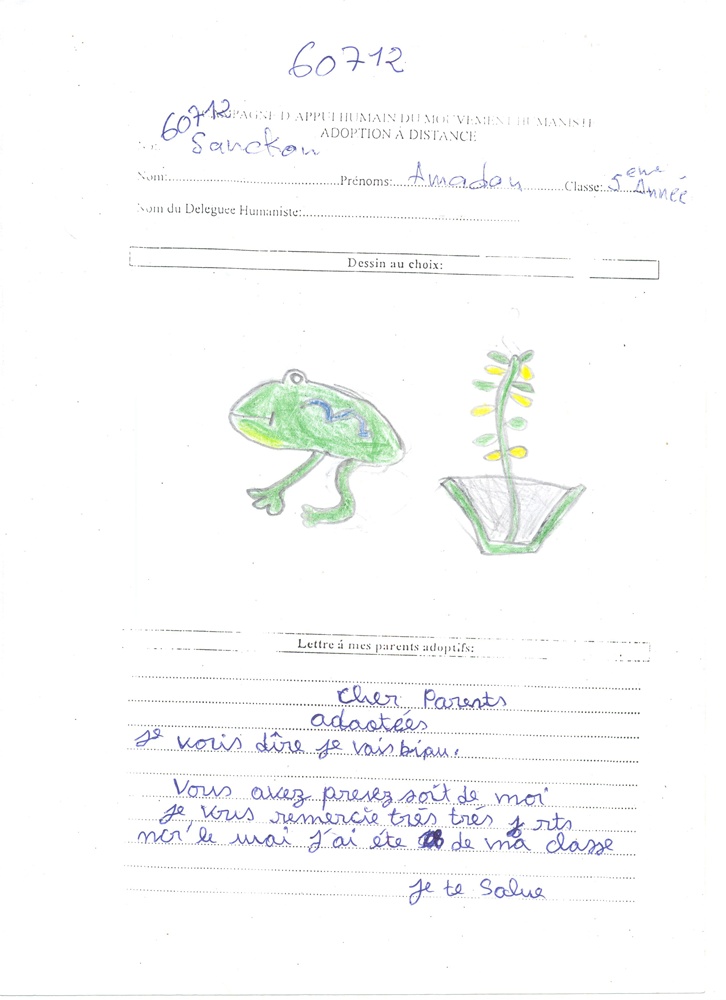 60712
60712
CAMPAGNE D'APPUI HUMAIN DU MOUVEMENT HUMANISTE
ADOPTION À DISTANCE
Sanckou
Nom: Prénoms: Amadou Classe: 5eme Année
Nom du Deleguee Humaniste:
Dessin au choix:
Lettre á mes parents adoptifs:
Cher Parents
adaotées
je voris dîre je vais bian.
Vous avez prenez soît de moi
je vous remercie très très
le mai j'ai éte de ma classe
je te Salue